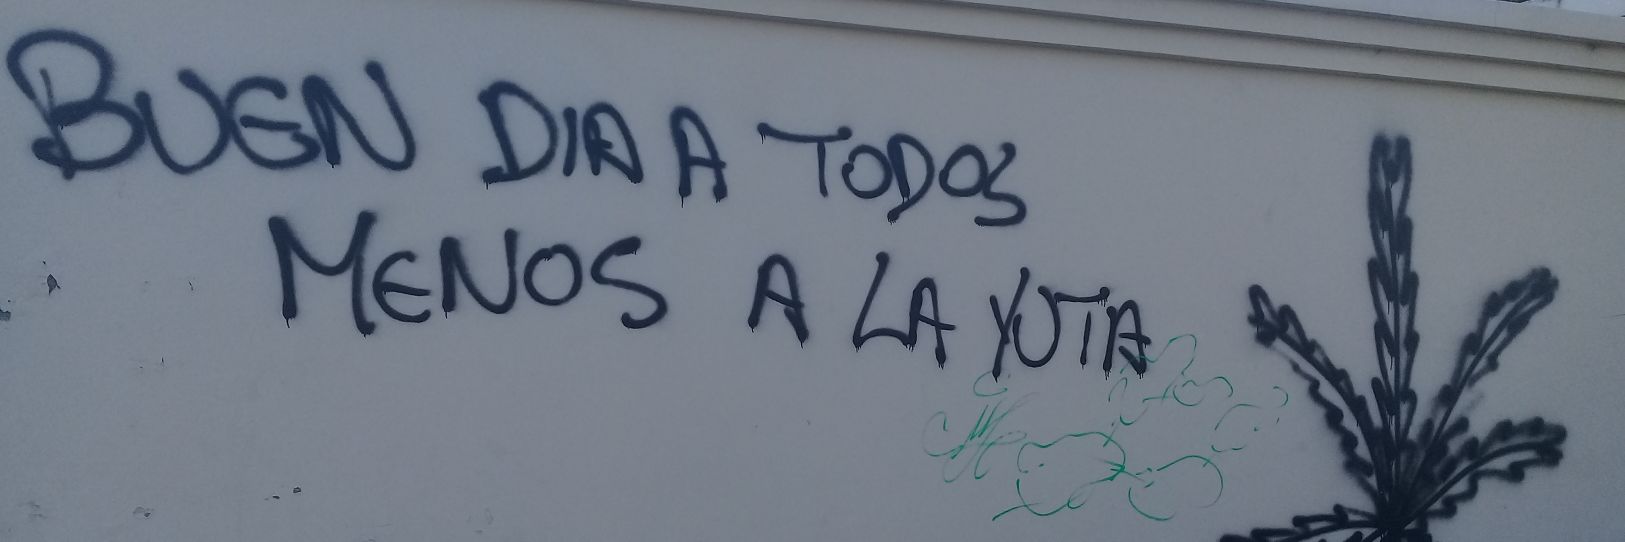 BUEN DIA A TODOS
MENOS A LA YUTA